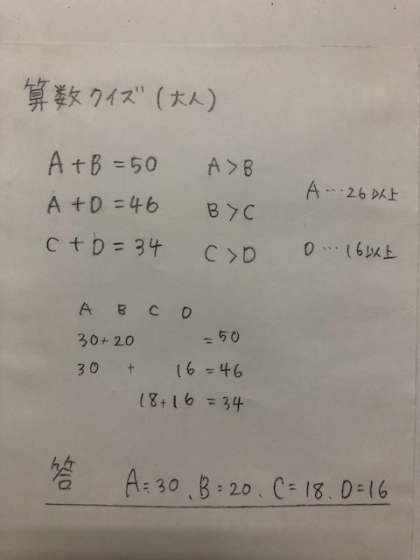 算数クイズ(大人)
A+B=50 A>B
A…26以上
A+D=46 B>C
C+D=34 C>D D…16以上
A B C D
30+20 =50
30 + 16=46
18+16=34
答 A=30、B=20、C=18、D=16